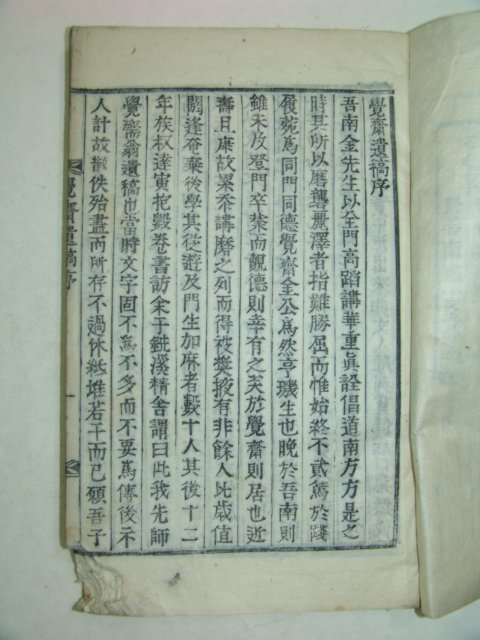 覺齋遺稿序
吾南金先生以全門高蹈講華重眞詮倡道南方方是之
時其所以磨礱麗澤者指難勝屈而惟始終不貳篤於踐
履菀爲同門同德覺齋金公爲然亨璣生也晩於吾南則
雖未及登門卒業而覿德則幸有之矣於覺齋則居也近
壽且康故累忝講磨之列而得被奬掖有非餘人比歲値
閼逢奄棄後學其從遊及門生加麻者數十人其後十二
年族叔達寅抱數卷書訪余于銑溪精舍謂曰此我先師
覺齋翁遺稿也當時文字固不爲不多而不要爲傳後不
人計故散佚殆盡而所存不過休紙堆若干而已願吾子
覺齋遺稿序 一